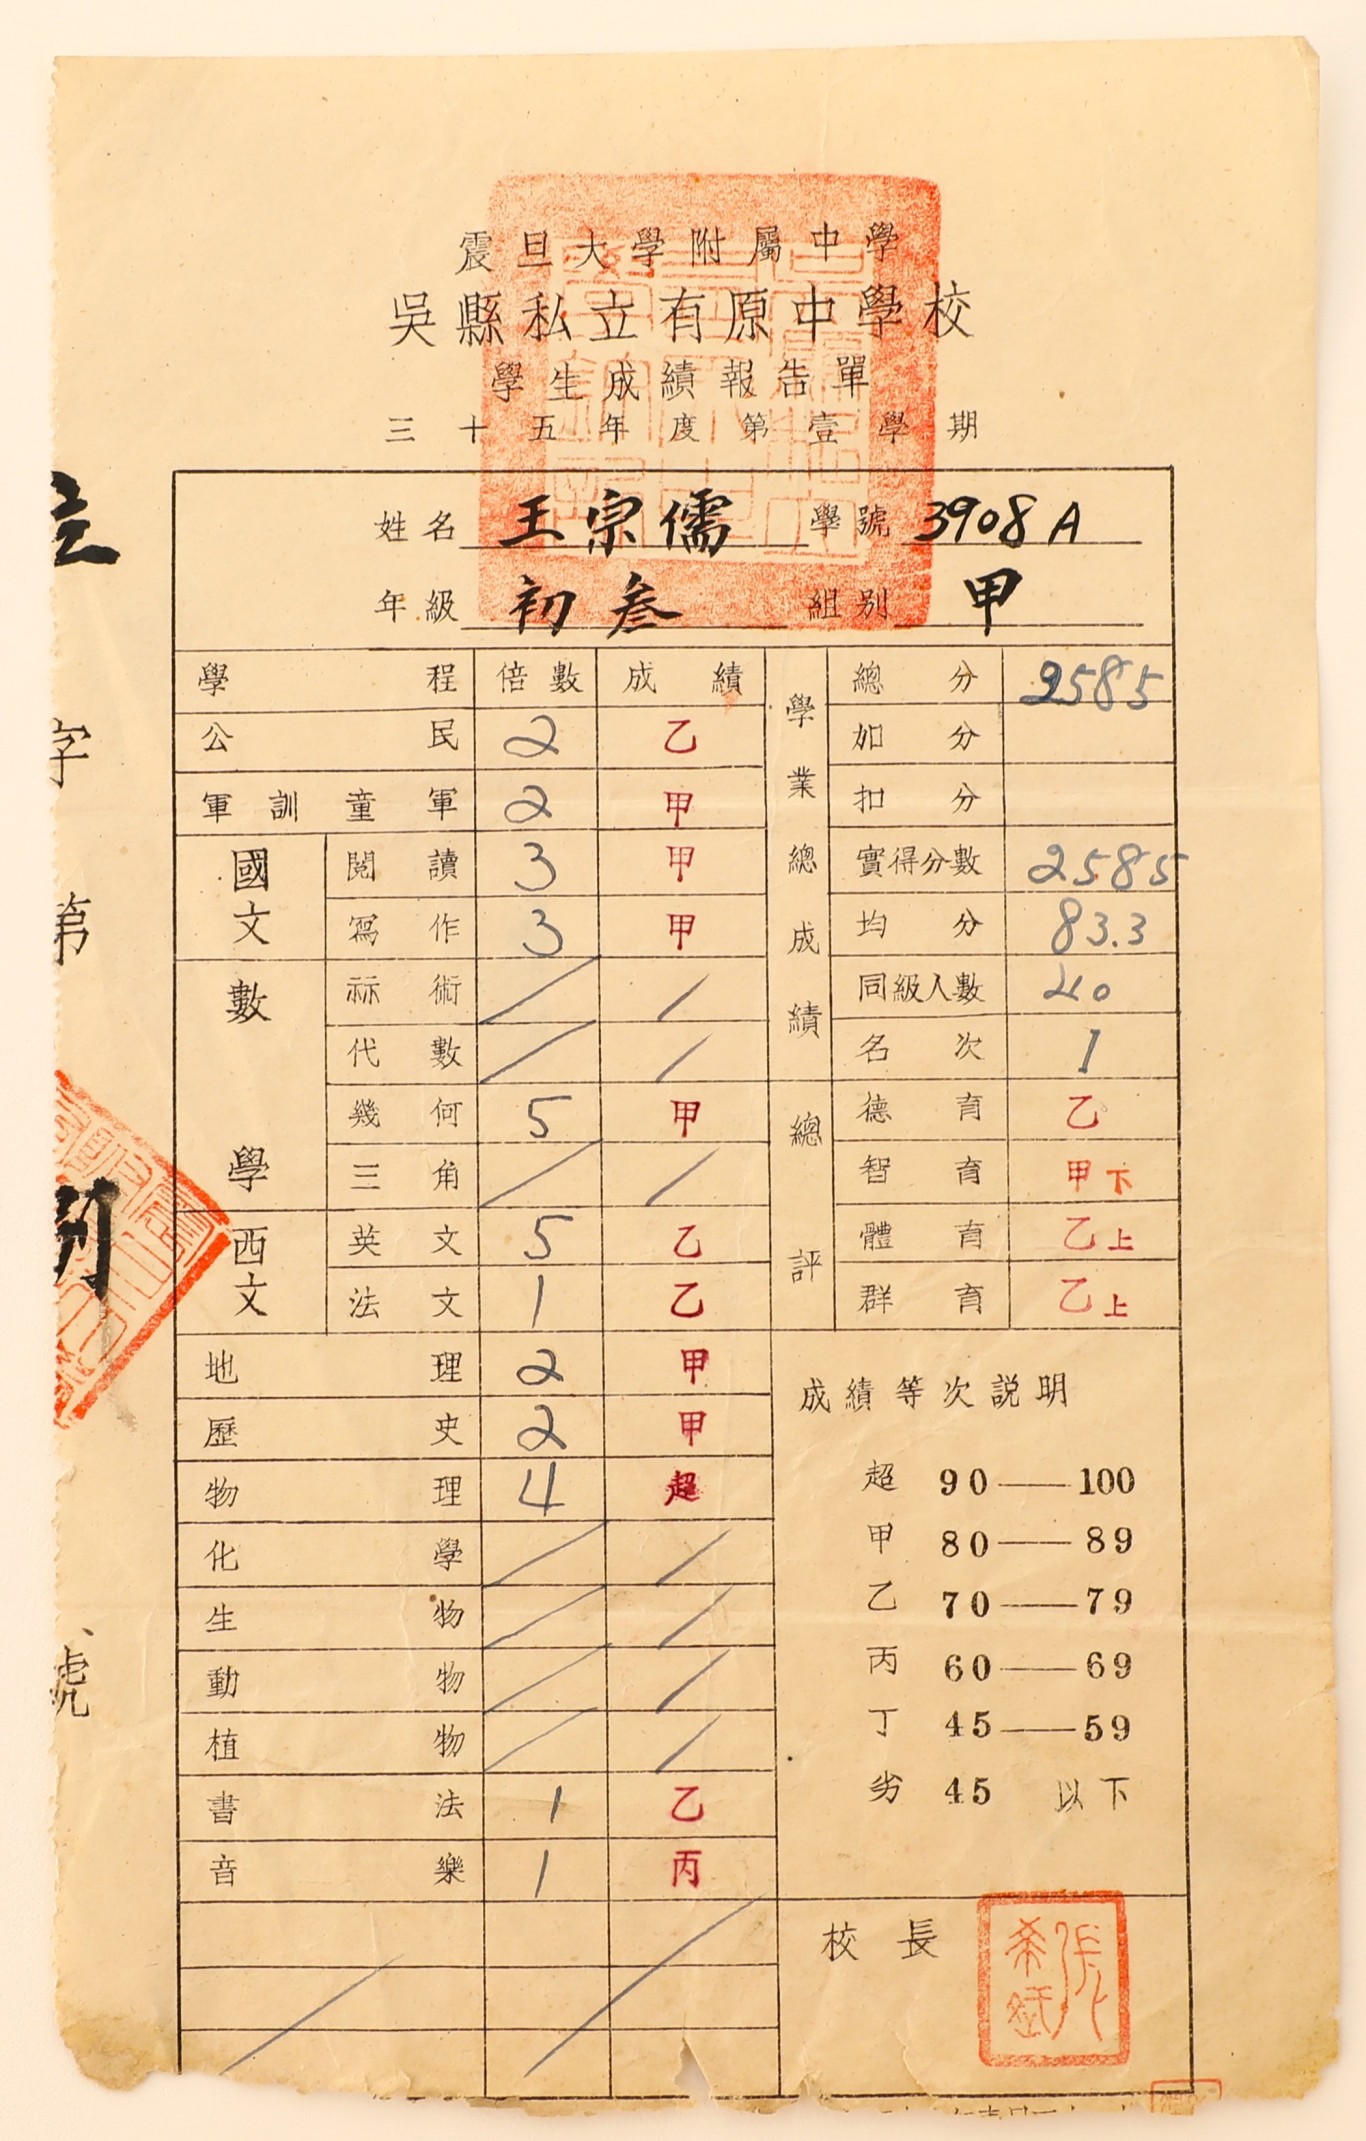 震旦大學附屬中學
吳縣私立有原中學校
學生成績報告單
三十五年度第壹學期
姓名 王宗儒 學號 3908A
年級 初叁 組別 甲
學程 倍數 成績
公民 2 乙
軍訓童軍 2 甲
國文 閱讀 3 甲
寫作 3 甲
數學 祘術 / /
代數 / /
幾何 5 甲
三角 / /
西文 英文 5 乙
法文 1 乙
地理 2 甲
歷史 2 甲
物理 4 超
化學 / /
生物 / /
動物 / /
植物 / /
書法 1 乙
音樂 1 丙
學業總成績
總分 2585
加分
扣分
實得分數 2585
均分 83.3
同級人數 40
名次 1
總評
德育 乙
智育 甲下
體育 乙上
群育 乙上
成績等次説明
超 90——100
甲 80——89
乙 70——79
丙 60——69
丁 45——59
劣 45 以下
校長
張希斌
字
第
號